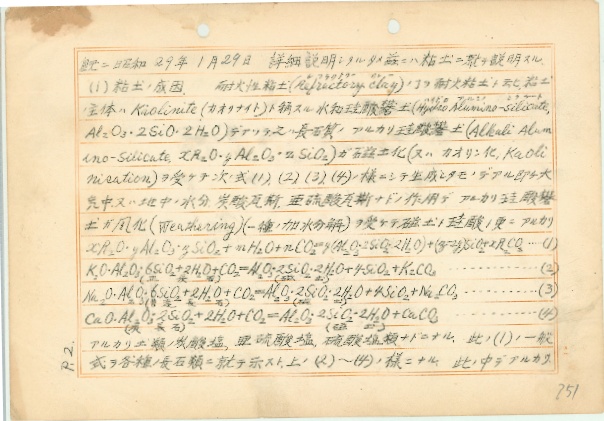 既ニ昭和29年1月29日 詳細説明シタルタメ茲ニハ粘土ニ就テ説明スル
(1)粘土ノ成因. 耐火性粘土(Refractory clay)ノコヲ耐火粘土ト云ヒ粘土
主体ハKaolinite(カオリナイト)ト称スル水和珪酸礬土(Hydro Alumino-Silicate,
Al₂O₃・2SiO₂・2H₂O)デアッテ之ハ長石質ノアルカリ珪酸礬土(Alkali Alum
ino-Silicate, xR₂O・yAl₂O₃・zSiO₂)ガ磁土化(又ハカオリン化, Kaoli
nisation)ヲ受ケテ次ノ式(1),(2),(3),(4)ノ様ニシテ生成シタモノデアル即チ大
気中又ハ地中ノ水分 炭酸瓦斯 亜硫酸瓦斯ナドノ作用デアルカリ珪酸礬
土ガ風化(Weathering)(一種ノ加水分解)ヲ受ケテ磁土ト珪酸ノ更ニアルカリ
xR₂O・yAl₂O₃・zSiO₂+mH₂O+nCO₂=y(Al₂O₃・2SiO₂・2H₂O)+(z-2y)SiO₂+xR₂CO₃ …(1)
K₂O・Al₂O₃・6SiO₂+2H₂O+CO₂=Al₂O₃・2SiO₂・2H₂O+4SiO₂+K₂CO₃ ……………(2)
Na₂O・Al₂O₃・6SiO₂+2H₂O+CO₂=Al₂O₃・2SiO₂・2H₂O+4SiO₂+Na₂CO₃ ……………(3)
CaO・Al₂O₃・2SiO₂+2H₂O+CO₂=Al₂O₃・2SiO₂・2H₂O+CaCO₃ ……………(4)
(灰長石) (磁土)
アルカリ土類ノ炭酸塩, 亜硫酸塩, 硫酸塩類トナル. 此ノ(1)ノ一般
式ヲ各種ノ長石類ニ就テ示スト上ノ(2)〜(4)ノ様ニナル 此ノ中デアルカリ
P.2.
751